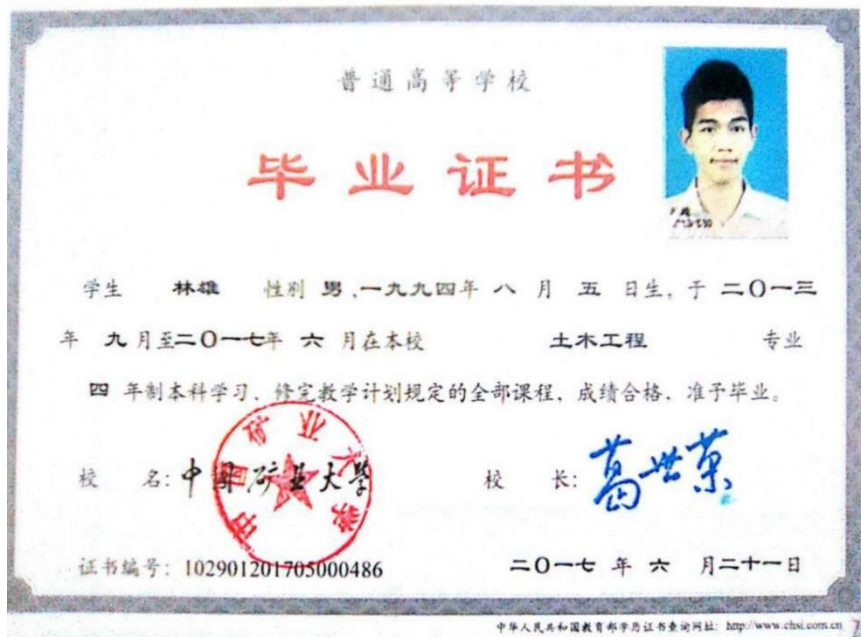 普通高等学校
毕业证书
学生 林雄 性别 男，一九九四年 八 月 五 日生，于 二〇一三
年 九 月至二〇一七年 六 月在本校 土木工程 专业
四 年制本科学习、修完教学计划规定的全部课程，成绩合格，准予毕业。
校 名：中国矿业大學
中国矿业大学
校 长：葛世荣
证书编号：102901201705000486
二〇一七 年 六 月二十一日
中华人民共和国教育部学历证书查询网址：http://www.chsi.com.cn